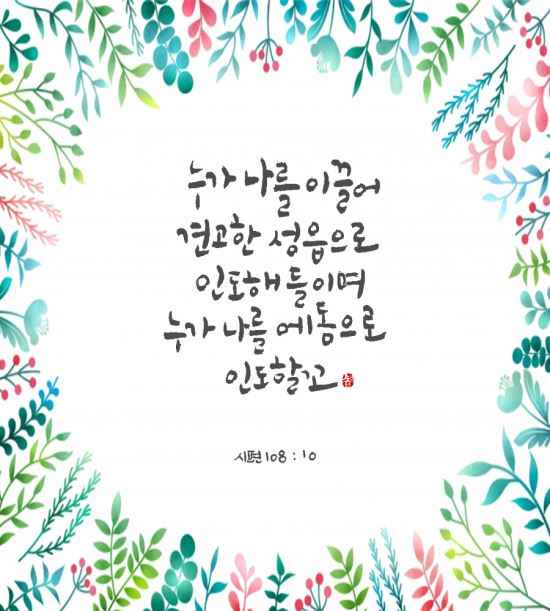 누가 나를 이끌어
견고한 성읍으로
인도해 들이며
누가 나를 에돔으로
인도할꼬
시편 108 : 10